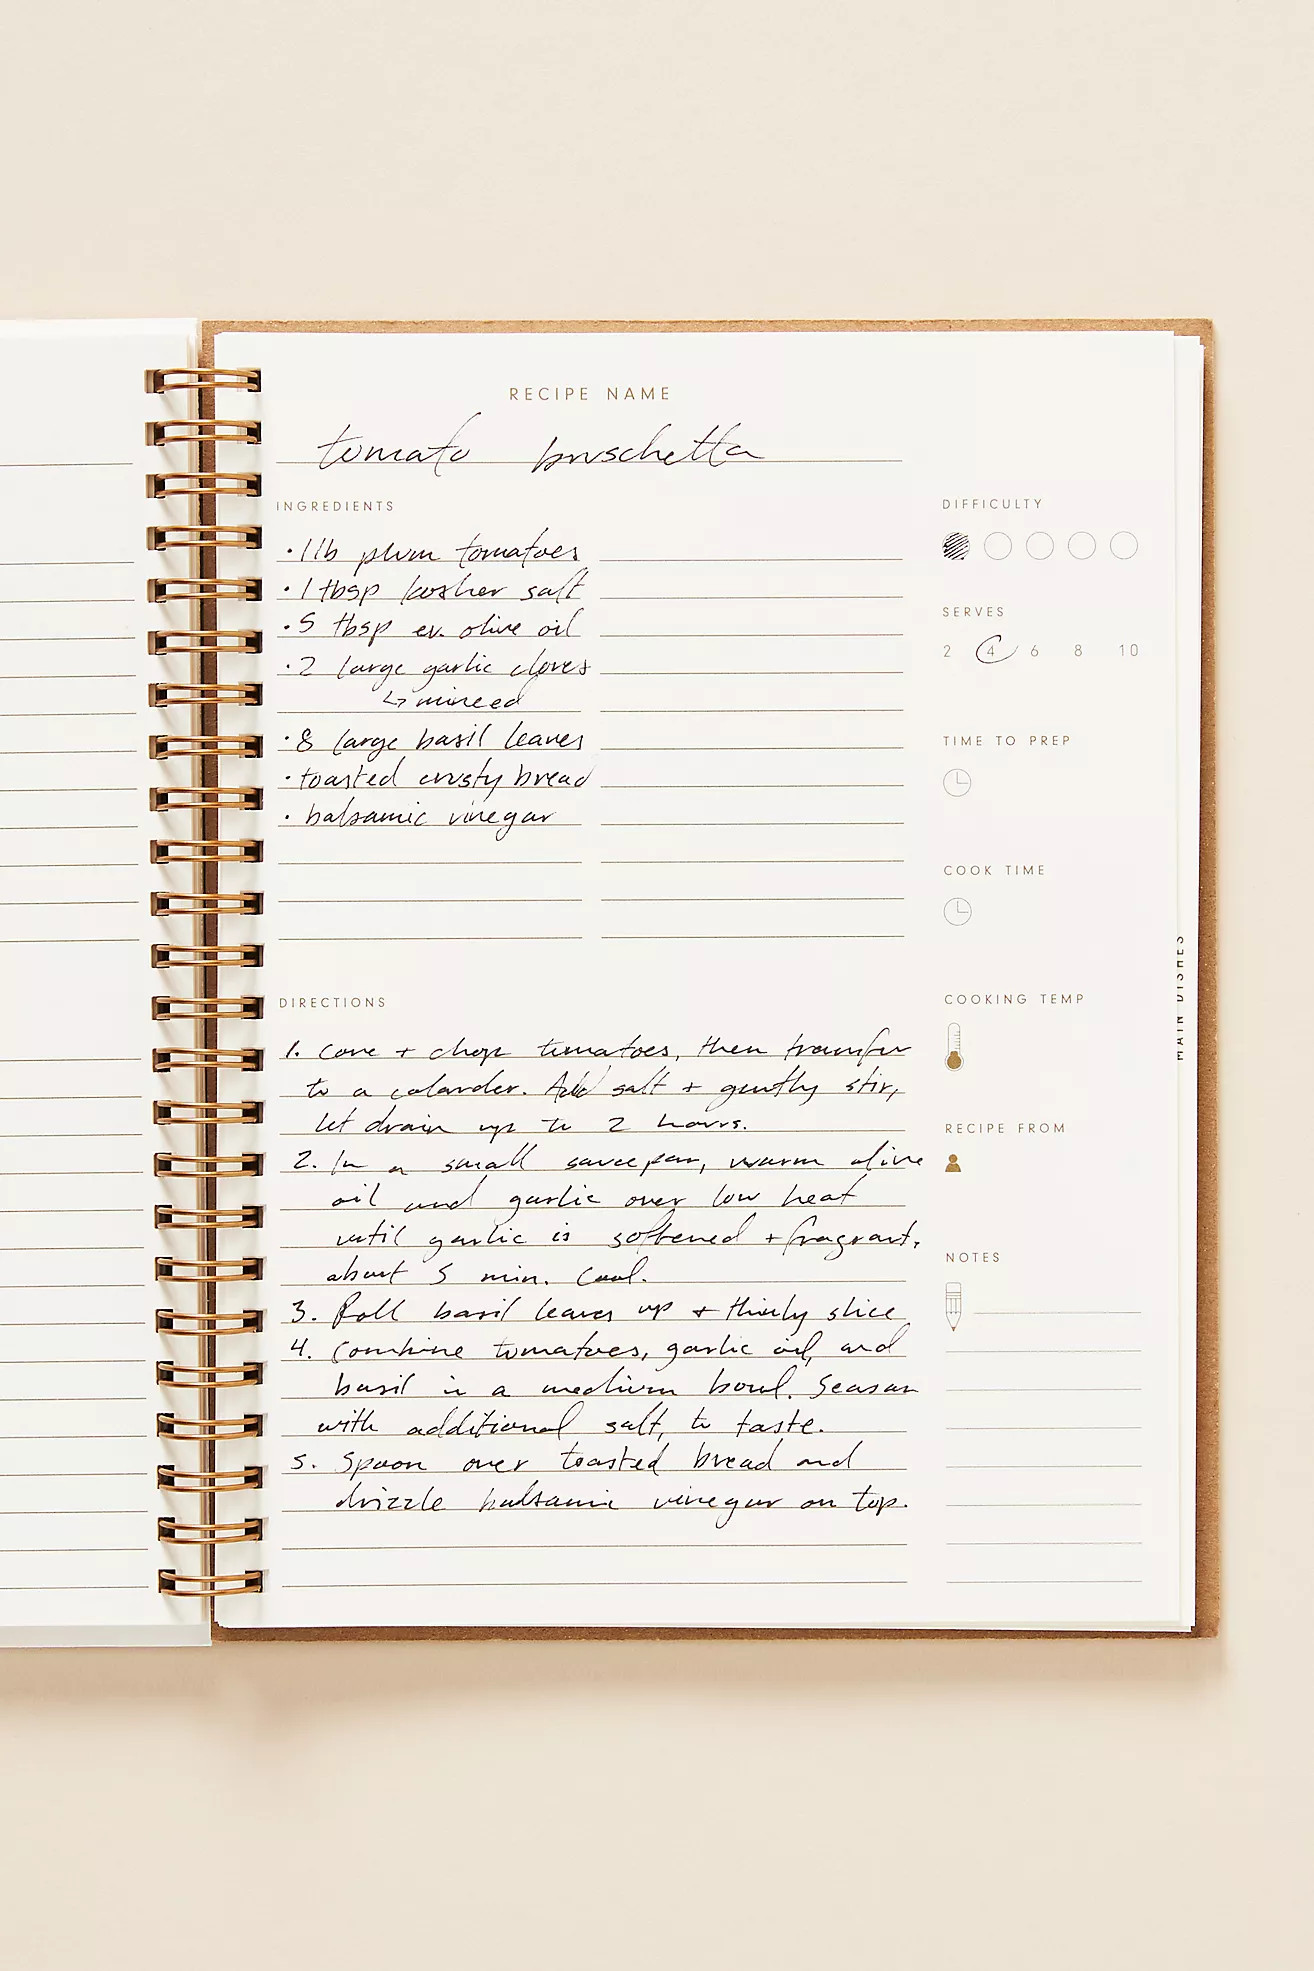 RECIPE NAME
tomato bruschetta
INGREDIENTS
• 1 lb plum tomatoes
• 1 tbsp kosher salt
• 5 tbsp ev. olive oil
• 2 large garlic cloves
↳ minced
• 8 large basil leaves
• toasted crusty bread
• balsamic vinegar
DIFFICULTY
SERVES
2 4 6 8 10
TIME TO PREP
COOK TIME
COOKING TEMP
RECIPE FROM
NOTES
DIRECTIONS
1. Core + chop tomatoes, then transfer
to a colander. Add salt + gently stir,
let drain up to 2 hours.
2. In a small saucepan, warm olive
oil and garlic over low heat
until garlic is softened + fragrant,
about 5 min. Cool.
3. Roll basil leaves up + thinly slice
4. Combine tomatoes, garlic oil, and
basil in a medium bowl. Season
with additional salt, to taste.
5. Spoon over toasted bread and
drizzle balsamic vinegar on top.
MAIN DISHES